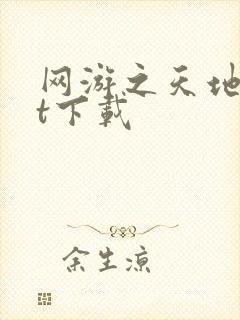 网游之天地
t下载
余生凉